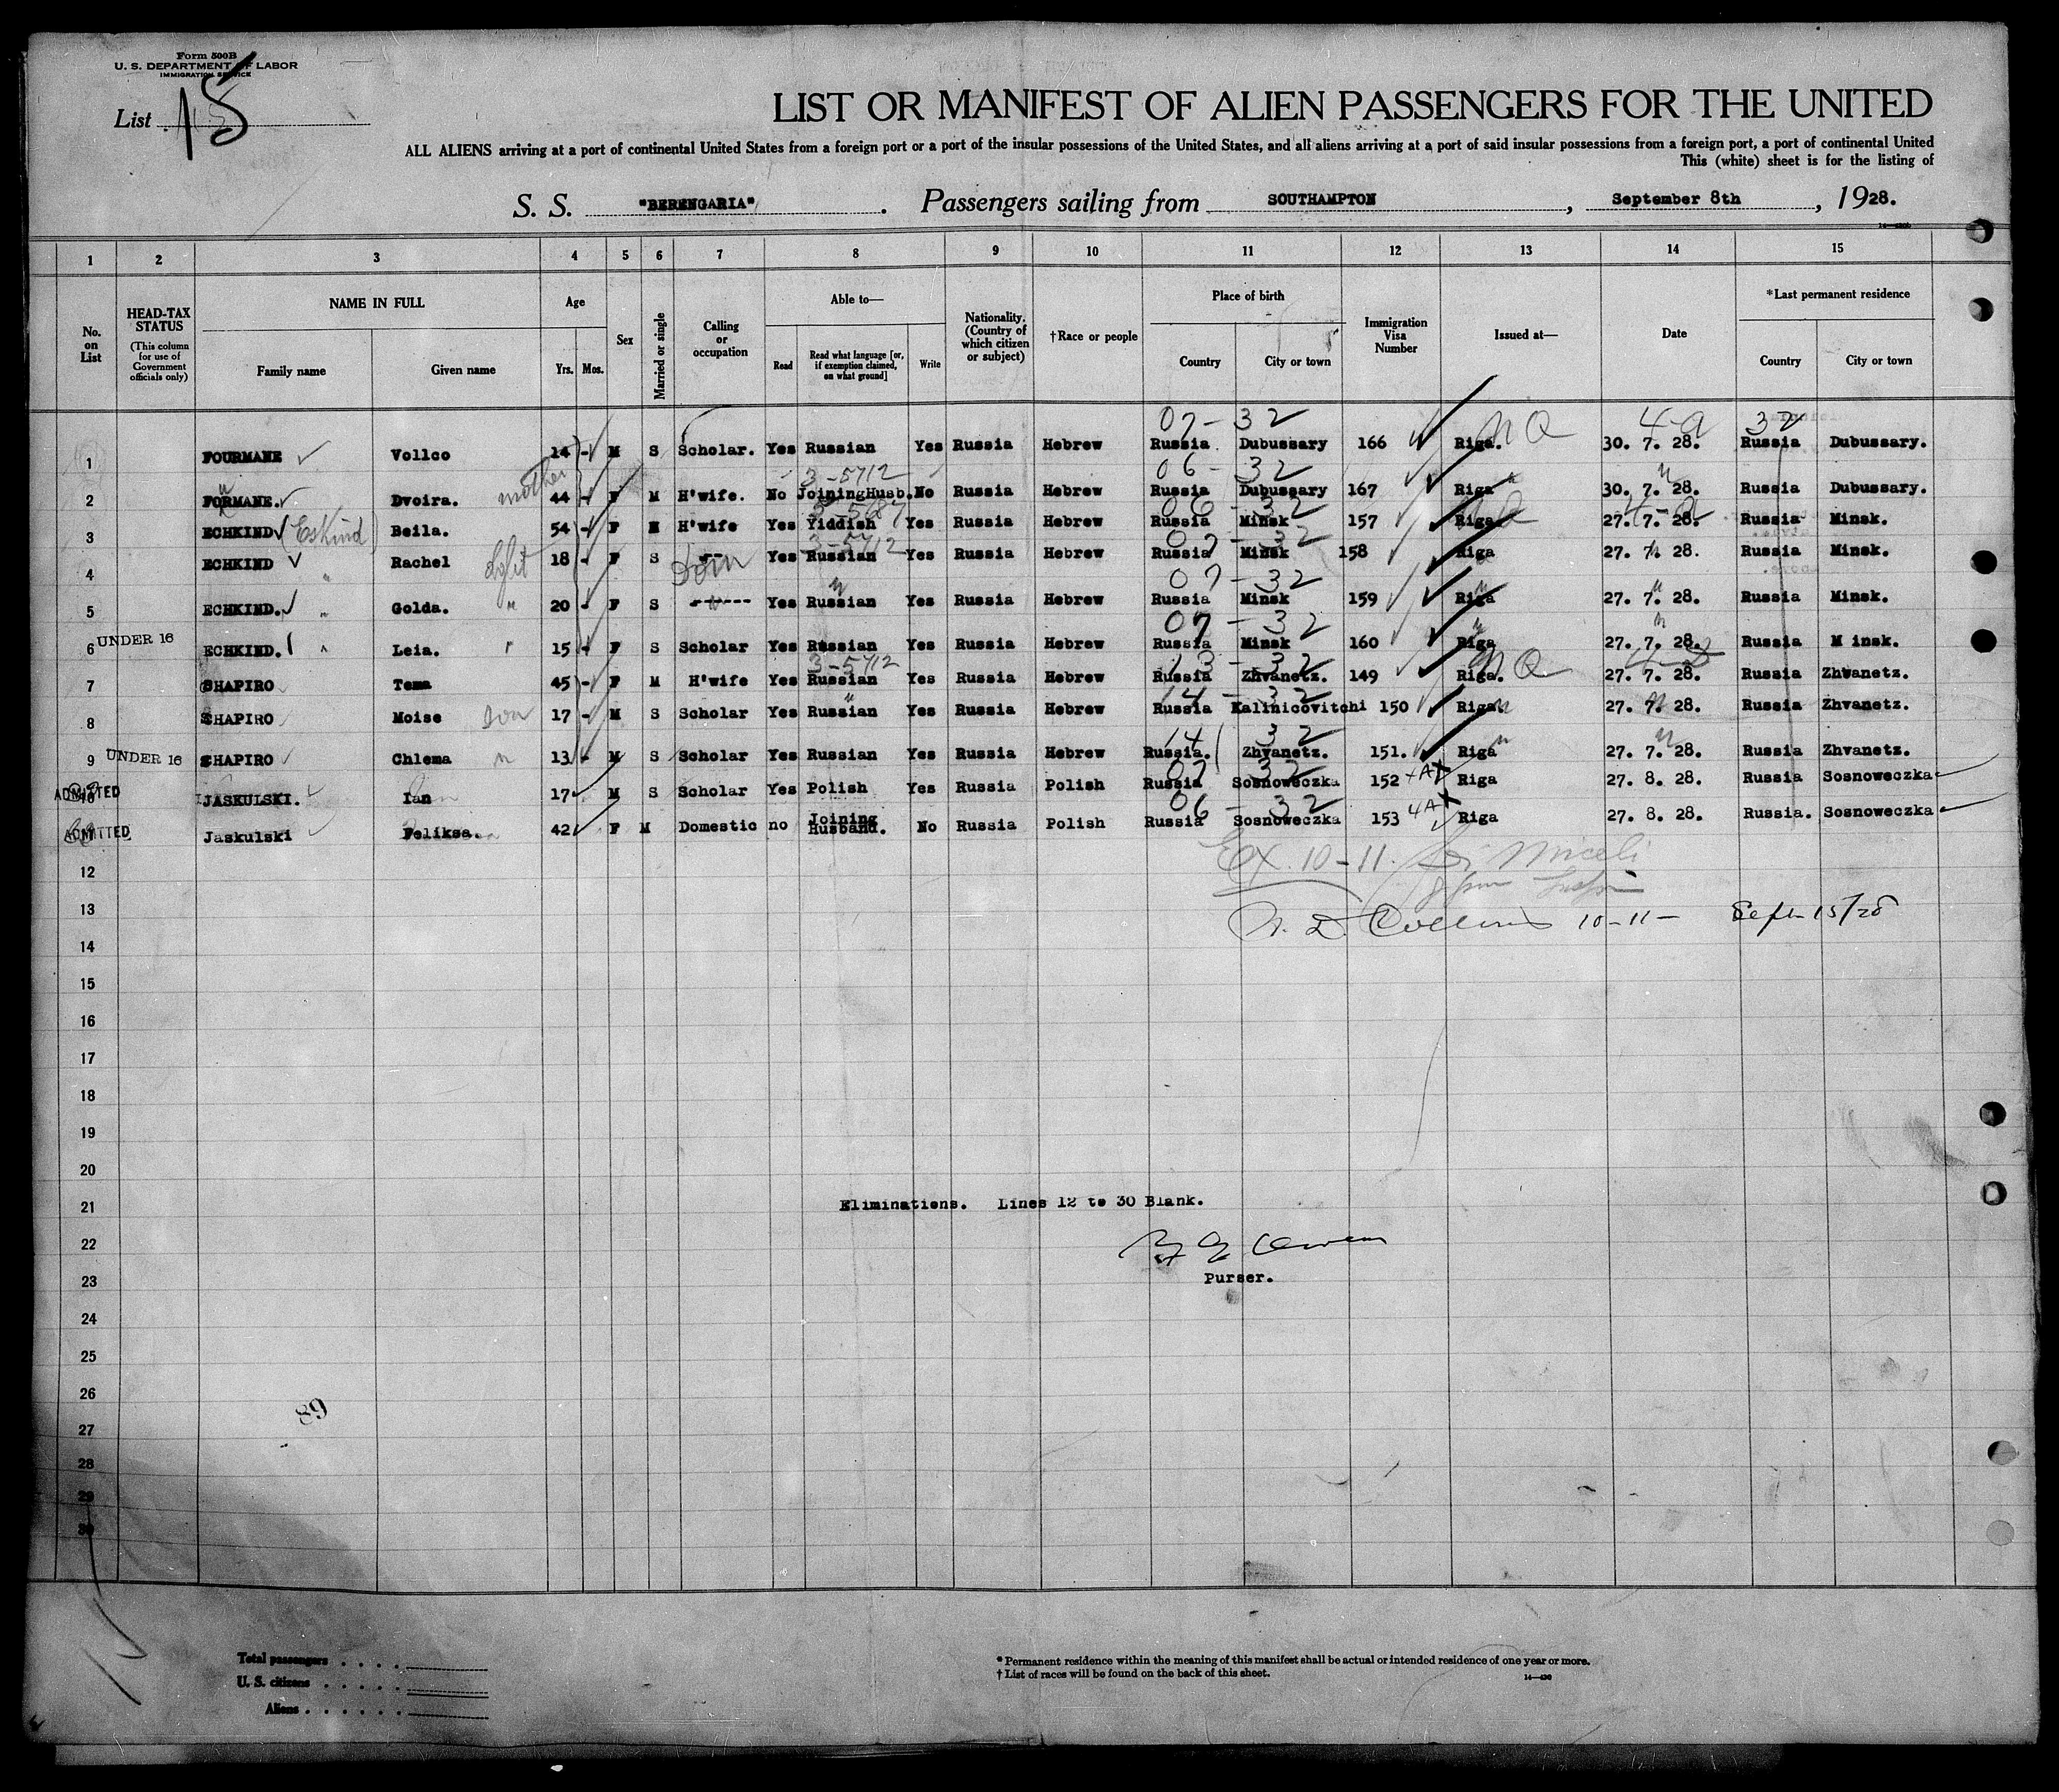 Form 500B
U. S. DEPARTMENT OF LABOR
IMMIGRATION SERVICE
List 15
LIST OR MANIFEST OF ALIEN PASSENGERS FOR THE UNITED
ALL ALIENS arriving at a port of continental United States from a foreign port or a port of the insular possessions of the United States, and all aliens arriving at a port of said insular possessions from a foreign port, a port of continental United
This (white) sheet is for the listing of
S. S. "BERENGARIA". Passengers sailing from SOUTHAMPTON, September 8th, 1928.
1 2 3 4 5 6 7 8 9 10 11 12 13 14 15
No. on List
HEAD-TAX STATUS (This column for use of Government officials only)
NAME IN FULL
Family name Given name
Age
Yrs. Mos.
Sex
Married or single
Calling or occupation
Able to—
Read Read what language [or, if exemption claimed, on what ground] Write
Nationality. (Country of which citizen or subject)
†Race or people
Place of birth
Country City or town
Immigration Visa Number
Issued at—
Date
*Last permanent residence
Country City or town
07-32 4-a 32
1 FOURMANE Vollco 14 - M S Scholar. Yes Russian Yes Russia Hebrew Russia Dubussary 166 Riga. NQ 30. 7. 28. Russia Dubussary.
3-5712 06-32
2 FORMANE. Dvoira. mother 44 - F M H'wife. No JoiningHusb. No Russia Hebrew Russia Dubussary 167 Riga 30. 7. 28. Russia Dubussary.
06-32
3 ECHKIND (Eskind) Beila. 54 - F M H'wife Yes Yiddish Yes Russia Hebrew Russia Minsk 157 Riga 27. 7. 28. Russia Minsk.
3-5712 07-32
4 ECHKIND Rachel 18 - F S Dom Yes Russian Yes Russia Hebrew Russia Minsk 158 Riga 27. 7. 28. Russia Minsk.
07-32
5 ECHKIND. " Golda. " 20 - F S ------ Yes Russian Yes Russia Hebrew Russia Minsk 159 Riga 27. 7. 28. Russia Minsk.
07-32
6 UNDER 16 ECHKIND. Leia. " 15 - F S Scholar Yes Russian Yes Russia Hebrew Russia Minsk 160 Riga 27. 7. 28. Russia M insk.
3-5712 13-32
7 SHAPIRO Tema 45 - F M H'wife Yes Russian Yes Russia Hebrew Russia Zhvanetz. 149 Riga. NQ 27. 7. 28. Russia Zhvanetz.
14-32
8 SHAPIRO Moise son 17 - M S Scholar Yes Russian Yes Russia Hebrew Russia Kalinicovitchi 150 Riga 27. 7. 28. Russia Zhvanetz.
14 32
9 UNDER 16 SHAPIRO Chlema " 13 - M S Scholar Yes Russian Yes Russia Hebrew Russia. Zhvanetz. 151. Riga 27. 7. 28. Russia Zhvanetz.
07 32
10 ADMITTED JASKULSKI. Ian 17 M S Scholar Yes Polish Yes Russia Polish Russia Sosnoweczka 152 Riga 27. 8. 28. Russia Sosnoweczka
06-32
ADMITTED Jaskulski Feliksa. 42 F M Domestic no Joining Husband. No Russia Polish Russia Sosnoweczka 153 Riga 27. 8. 28. Russia. Sosnoweczka
12 Ex. 10-11. Miceli
13 Collins 10-11- Sept 15/28
14
15
16
17
18
19
20
21 Eliminations. Lines 12 to 30 Blank.
22
23 Purser.
24
25
26
89
27
28
29
30
Total passengers
U. S. citizens
Aliens
*Permanent residence within the meaning of this manifest shall be actual or intended residence of one year or more.
†List of races will be found on the back of this sheet.
14—430